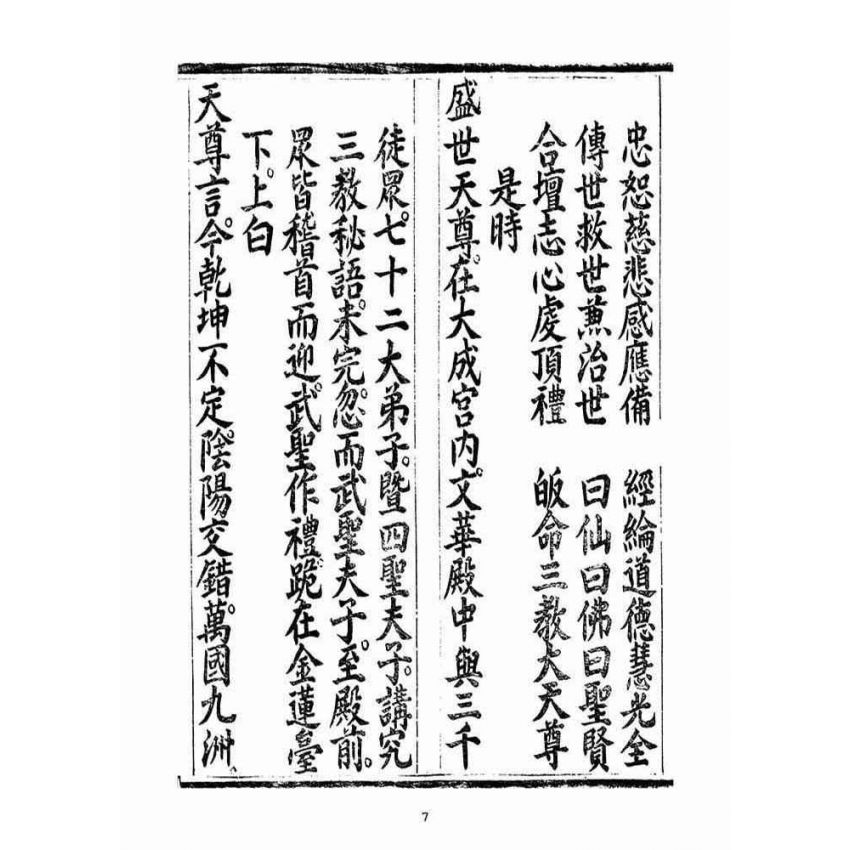 忠恕慈悲感應備　經綸道德慧光全
傳世救世兼治世　曰仙曰佛曰聖賢
合壇志心虔頂禮　皈命三教大天尊
是時
盛世天尊。在大成宮內。文華殿中與三千
徒眾。七十二大弟子。暨四聖夫子。講究
三教秘語。未完。忽而武聖夫子。至殿前。
眾皆稽首而迎。武聖作禮。跪在金蓮臺
下。上白
天尊言。今乾坤不定。陰陽交錯。萬國九洲、
7